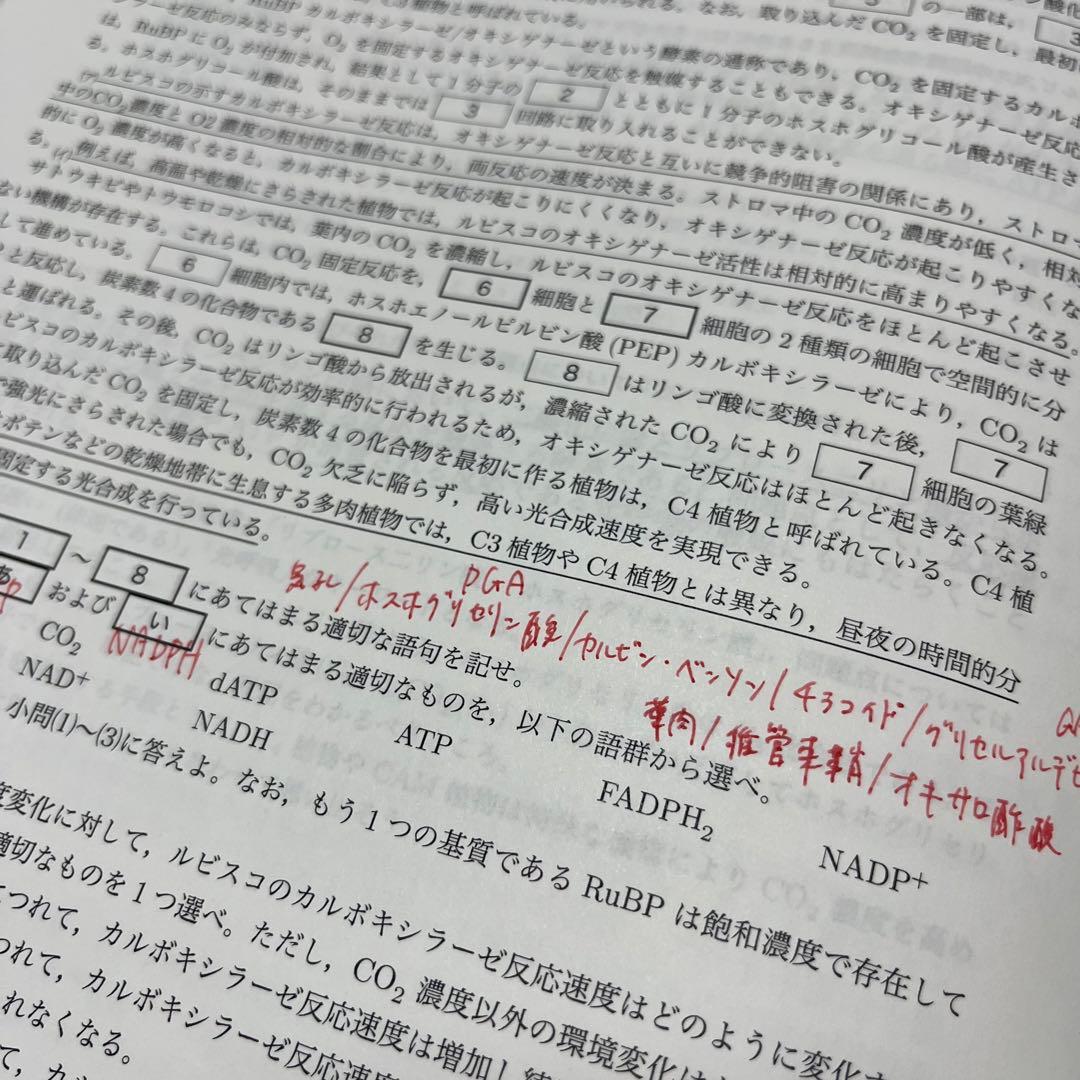 C3植物と呼ばれている。なお，取り込んだ CO₂ を固定し，最初
RuBP カルボキシラーゼ/オキシゲナーゼという酵素の通称であり，CO₂ を固定するカルボ
シラーゼ反応のみならず，O₂ を固定するオキシゲナーゼ反応を触媒することもできる。オキシゲナーゼ反応
は，RuBP に O₂ が付加され，結果として1分子の 2 とともに1分子のホスホグリコール酸が産生さ
る。ホスホグリコール酸は，そのままでは 3 回路に取り入れることができない。
(ア)ルビスコの示すカルボキシラーゼ反応は，オキシゲナーゼ反応と互いに競争的阻害の関係にあり，ストロマ
中のCO₂濃度と O2 濃度の相対的な割合により，両反応の速度が決まる。ストロマ中の CO₂ 濃度が低く，相対
的に O₂ 濃度が高くなると，カルボキシラーゼ反応が起こりにくくなり，オキシゲナーゼ反応が起こりやすくな
る。(イ)例えば，高温や乾燥にさらされた植物では，ルビスコのオキシゲナーゼ活性は相対的に高まりやすくなる。
サトウキビやトウモロコシでは，葉内の CO₂ を濃縮し，ルビスコのオキシゲナーゼ反応をほとんど起こさせ
ない機構が存在する。これらは，CO₂ 固定反応を， 6 細胞と 7 細胞の2種類の細胞で空間的に分
して進めている。 6 細胞内では，ホスホエノールピルビン酸 (PEP) カルボキシラーゼにより，CO₂ は
と反応し，炭素数4の化合物である 8 を生じる。 8 はリンゴ酸に変換された後， 7
と運ばれる。その後，CO₂ はリンゴ酸から放出されるが，濃縮された CO₂ により 7 細胞の葉緑
ビスコのカルボキシラーゼ反応が効率的に行われるため，オキシゲナーゼ反応はほとんど起きなくなる。
取り込んだ CO₂ を固定し，炭素数4の化合物を最初に作る植物は，C4 植物と呼ばれている。C4 植
で強光にさらされた場合でも，CO₂ 欠乏に陥らず，高い光合成速度を実現できる。
ボテンなどの乾燥地帯に生息する多肉植物では，C3 植物や C4 植物とは異なり，昼夜の時間的分
固定する光合成を行っている。
1 ～ 8 にあてはまる適切な語句を記せ。
気孔/ホスホグリセリン酸/カルビン・ベンソン/チラコイド/グリセルアルデヒ
PGA
葉肉/維管束鞘/オキサロ酢酸
あ および い にあてはまる適切なものを，以下の語群から選べ。
NADPH
CO₂ dATP FADPH₂ NADP+
NAD+ NADH ATP
小問(1)～(3)に答えよ。なお，もう1つの基質である RuBP は飽和濃度で存在して
度変化に対して，ルビスコのカルボキシラーゼ反応速度はどのように変化す
適切なものを1つ選べ。ただし，CO₂ 濃度以外の環境変化は
つれて，カルボキシラーゼ反応速度は増加し続
つれて，カルボキシラーゼ反応速
れなくなる。